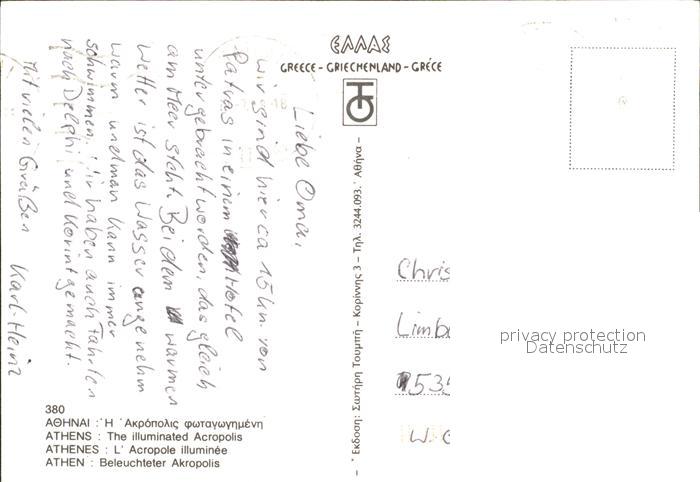 ΕΛΛΑΣ
GREECE - GRIECHENLAND - GRÉCE
Liebe Oma,
wir sind hier ca 15 km. von
Patras in einem Hotel
untergebracht worden, das gleich
am Meer steht. Bei dem warmen
Wetter ist das Wasser angenehm
warm und man kann immer
schwimmen. Wir haben auch Fahrten
nach Delphi und Korint gemacht.
Mit vielen Grüßen Karl-Heinz
380
ΑΘΗΝΑΙ : Ἡ Ἀκρόπολις φωταγωγημένη
ATHENS : The illuminated Acropolis
ATHENES : L' Acropole illuminée
ATHEN : Beleuchteter Akropolis
– Ἔκδοση: Σωτήρη Τουμπή – Κορίνης 3 – Τηλ. 3244.093. Ἀθήνα –
Chris
Limb
535
W.
privacy protection
Datenschutz